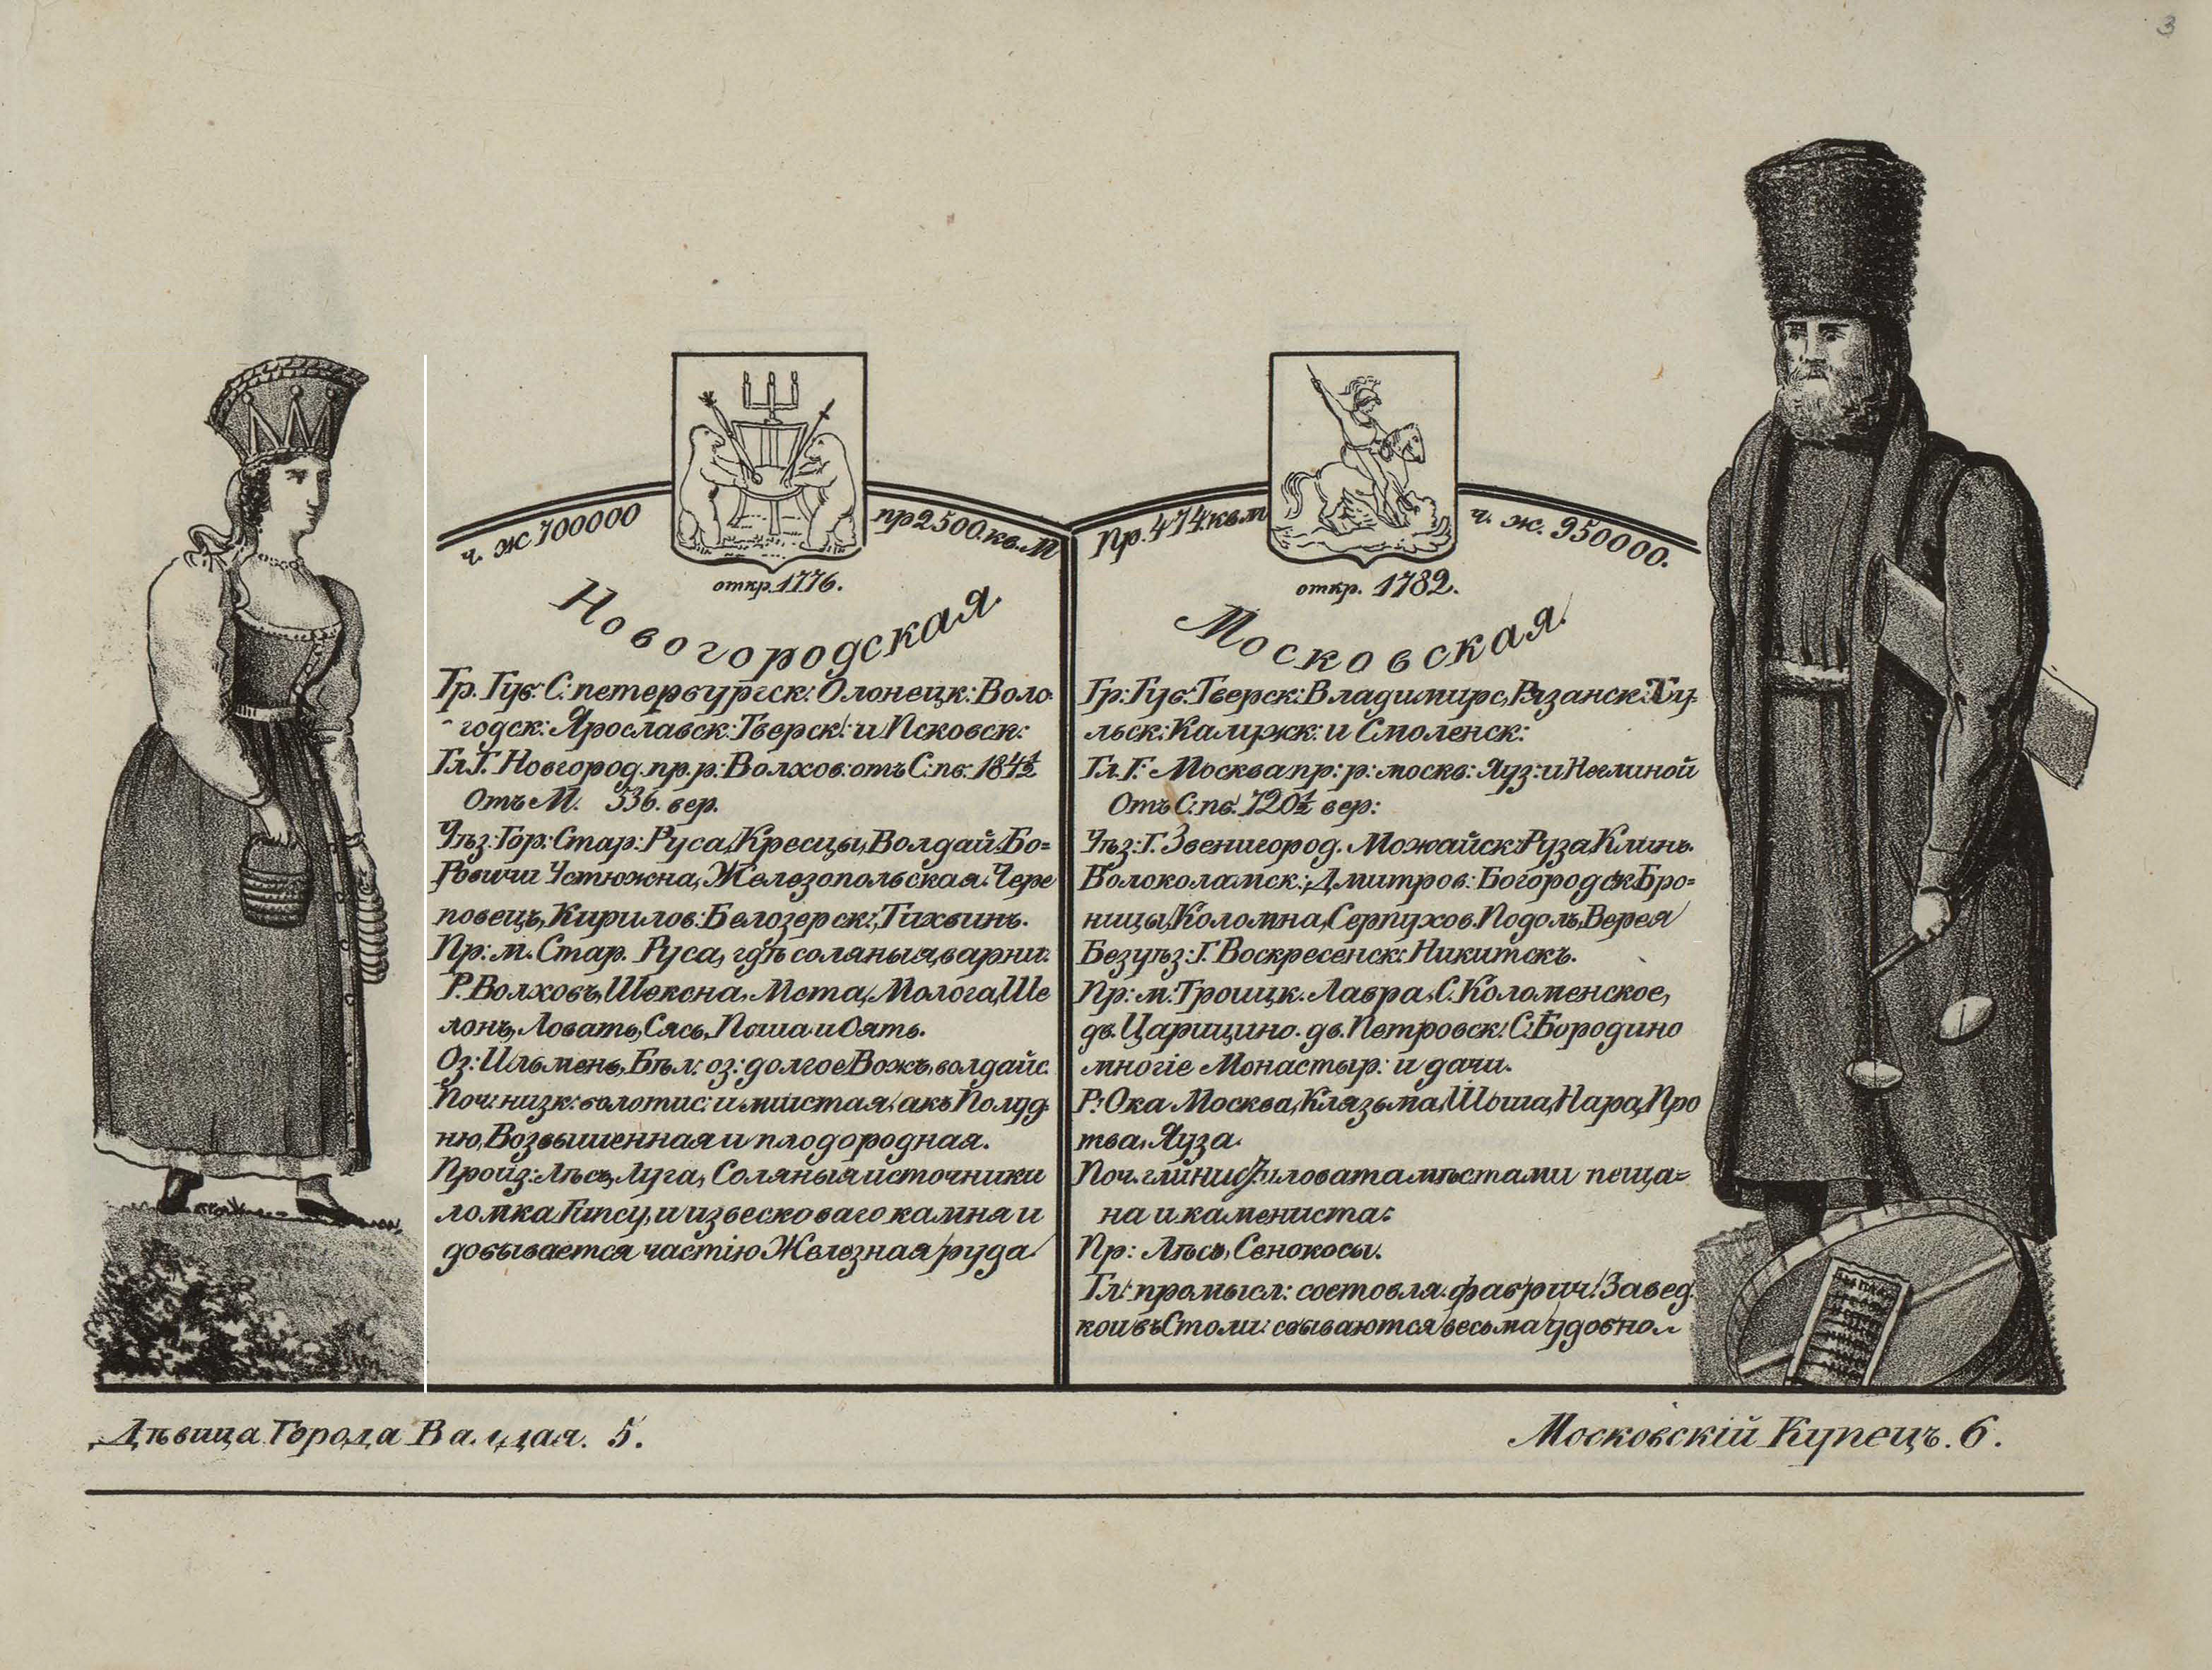 3
ч. ж 700000
пр 2500. кв. М
откр. 1776.
Новогородская.
Гр. Губ: С: петербургск: Олонецк: Воло-
годск: Ярославск: Тверск: и Псковск:
Гл. Г. Новгород. пр. р: Волхов: отъ С: пб: 184½
Отъ М. 536. вер.
Уѣз: Гор: Стар: Руса, Кресцы, Волдай, Бо=
ровичи Устюжна, Железопольская. Чере
повецъ, Кирилов: Белозерск:, Тихвинъ.
Пр: м. Стар. Руса, гдѣ соляныя, варни:
Р. Волховъ, Шексна, Мста, Молога, Ше
лонъ, Ловать, Сясь, Паша и Оять.
Оз: Ильмень, Бѣл: оз: долгое Вожъ, волдайс.
Поч: низк: болотис: и мшистая, акъ Полуд
ню, Возвышенная и плодородная.
Произ: Лѣсъ, Луга, Соляныя источники
ломка Гипсу, и известковаго камня и
добывается частію Железная руда
Пр. 474 квм
ч. ж. 950000.
откр. 1782.
Московская.
Гр: Губ: Тверск: Владимирс, Рязанск: Ту-
льск: Калужк: и Смоленск:
Гл. Г. Москва пр: р: москв: Яуз: и Неглиной
Отъ С: пб. 720½ вер:
Уѣз: Г. Звенигород. Можайск: Руза, Клинъ.
Волоколамск:, Дмитров: Богородск Бро=
ницы, Коломна, Серпухов. Подоль, Верея
Безуѣз: Г. Воскресенск: Никитскъ.
Пр: м: Троицк. Лавра, С. Коломенское,
дв. Царицино. дв. Петровск: С. Бородино
многіе Монастыр: и дачи.
Р: Ока Москва, Клязьма, Шоша, Нара, Про
тва, Яуза.
Поч. глинис, иловата мѣстами песча=
на и камениста:
Пр: Лѣсъ, Сенокосы.
Гл: промысл: состовля. фабрич: Завед.
кои въ Столи: сбываются весьма удобно.
Дѣвица Города Валдая. 5.
Московскій Купецъ. 6.